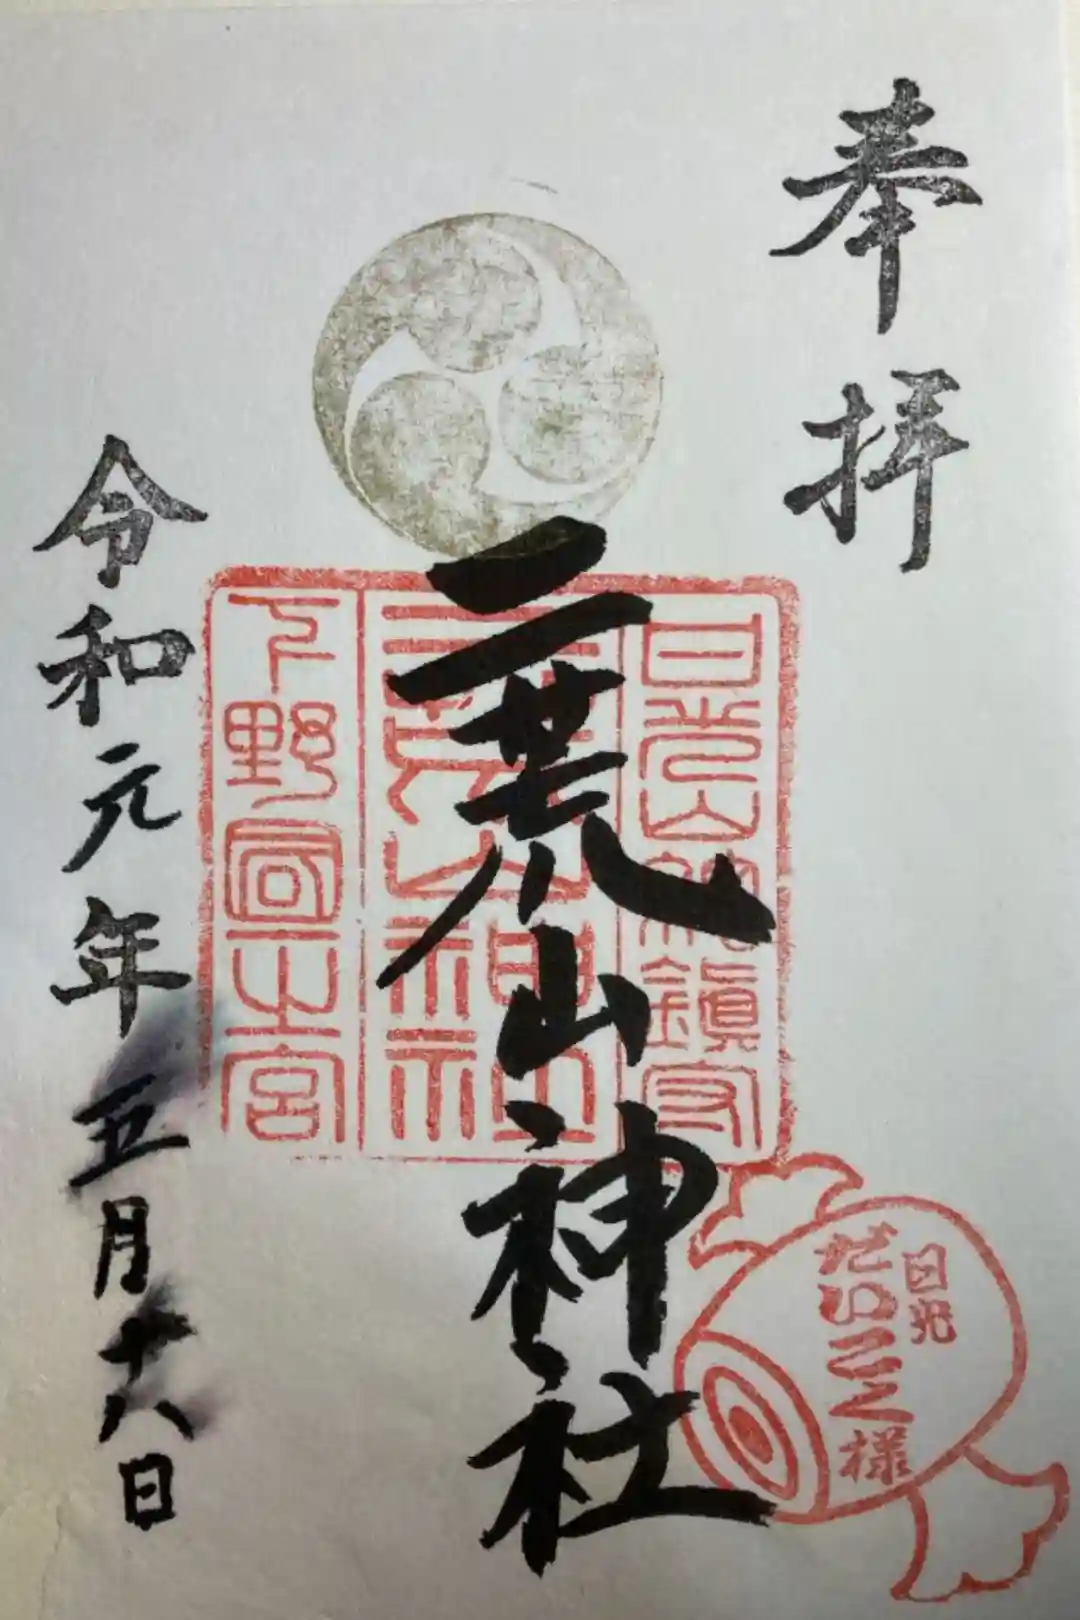 奉拝
日光山総鎮守
二荒山神社
下野国一之宮
二荒山神社
日光
だいこく
様
令和元年五月十八日